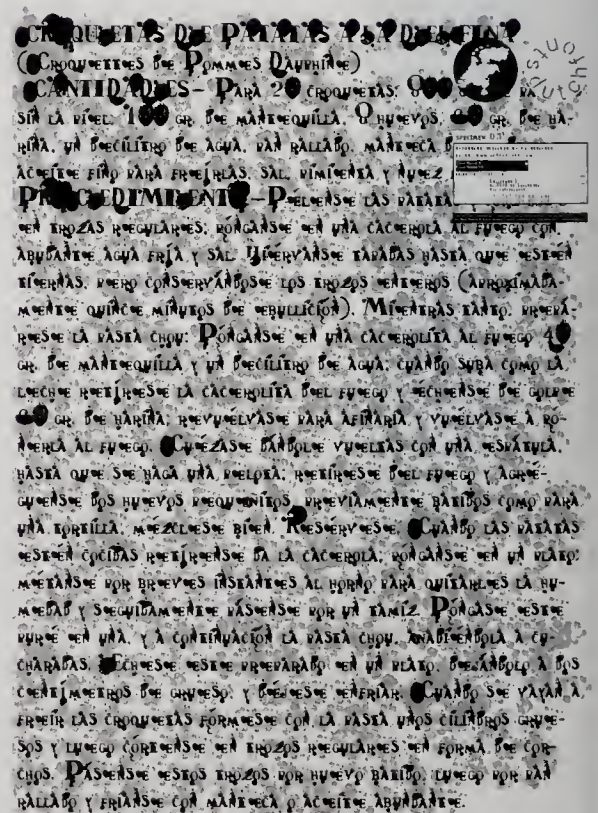 CROQUETAS DE PATATAS A LA DELFINA
(CROQUETTES DE POMMES DAUPHINE)
CANTIDADES– PARA 20 CROQUETAS: 800
SIN LA PIEL. 100 GR. DE MANTEQUILLA. 8 HUEVOS. GR. DE HA-
RINA. UN DECILITRO DE AGUA. PAN RALLADO. MANTECA
ACEITE FINO PARA FREIRLAS. SAL. PIMIENTA Y NUEZ
PROCEDIMIENTO–PELENSE LAS PATATA
EN TROZAS REGULARES; PONGANSE EN UNA CACEROLA AL FUEGO CON
ABUDANTE AGUA FRÍA Y SAL. HIERVANSE TAPADAS HASTA QUE ESTEN
TIERNAS, PERO CONSERVÁNDOSE LOS TROZOS ENTEROS (APROXIMADA-
MENTE QUINCE MINUTOS DE EBULLICION). MIENTRAS TANTO, PREPÁ-
RESE LA PASTA CHOU: PÓNGANSE EN UNA CACEROLITA AL FUEGO 40
GR. DE MANTEQUILLA Y UN DECILITRO DE AGUA; CUANDO SUBA COMO LA
LECHE RETIRESE LA CACEROLITA DEL FUEGO Y ECHENSE DE GOLPE
GR. DE HARINA; REVUELVASE PARA AFINARIA Y VUELVASE A PO-
NERLA AL FUEGO. CUÉZASE DÁNDOLE VUELTAS CON UNA ESPÁTULA,
HASTA QUE SE HAGA UNA PELOTA; RETÍRESE DEL FUEGO Y AGRÉ-
GUENSE DOS HUEVOS PEQUENITOS, PREVIAMENTE BATIDOS COMO PARA
UNA TORTILLA; MEZCLESE BIEN. RESERVESE. CUANDO LAS PATATAS
ESTEN COCIDAS RETIRENSE DA LA CACEROLA; PONGANSE EN UN PLATO;
METANSE POR BREVES INSTANTES AL HORNO PARA QUITARLES LA HU-
MEDAD Y SEGUIDAMENTE PÁSENSE POR UN TAMIZ. PÓNGASE ESTE
PURE EN UNA, Y A CONTINUACIÓN LA PASTA CHOU, ANADIENDOLA A CU-
CHARADAS. ECHESE ESTE PREPARADO EN UN PLATO, DEJANDOLO A DOS
CENTIMETROS DE GRUESO; Y DEJESE ENFRIAR. CUANDO SE VAYAN A
FREÍR LAS CROQUETAS FORMESE CON LA PASTA UNOS CILINDROS GRUE-
SOS Y LUEGO CORTENSE EN TROZOS REGULARES EN FORMA DE COR-
CHOS. PÁSENSE ESTOS TROZOS POR HUEVO BATIDO, LUEGO POR PAN
RALLADO Y FRIANSE CON MANTECA O ACEITE ABUNDANTE.